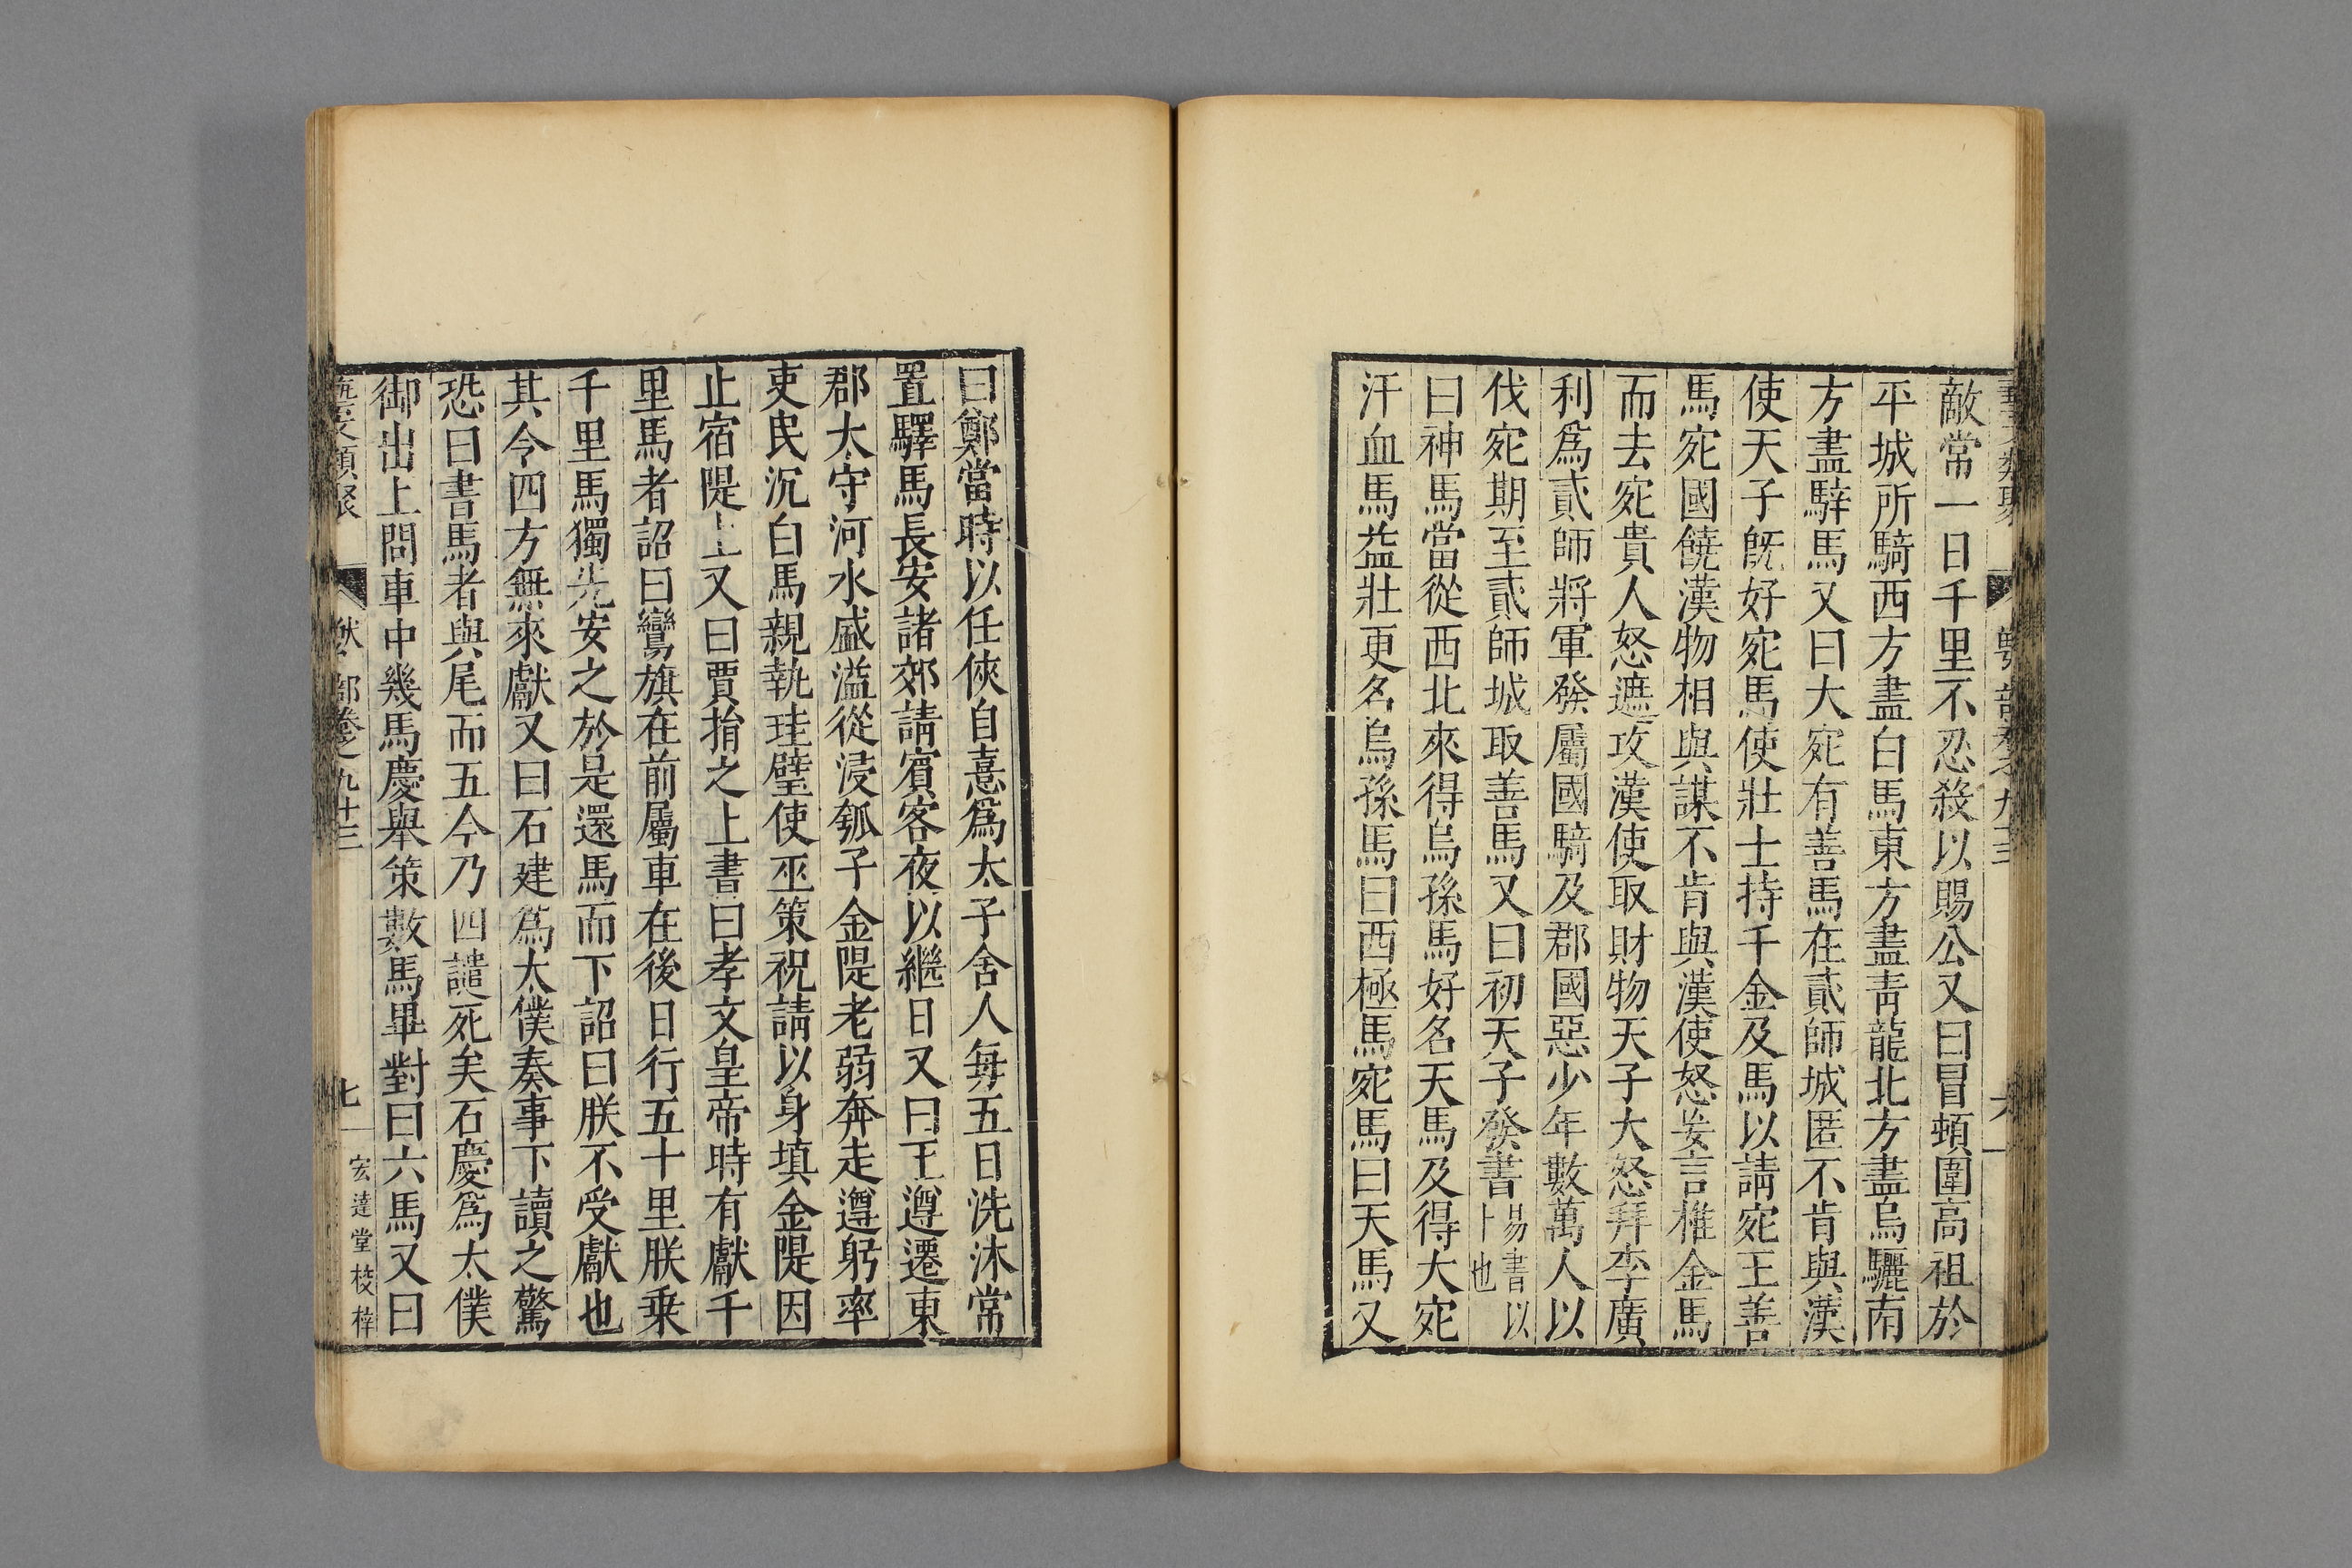 敵常一日千里不忍殺以賜公又曰冒頓圍高祖於
平城所騎西方盡白馬東方盡靑龍北方盡烏驪南
方盡騂馬又曰大宛有善馬在貳師城匿不肯與漢
使天子旣好宛馬使壯士持千金及馬以請宛王善
馬宛國饒漢物相與謀不肯與漢使怒妄言椎金馬
而去宛貴人怒遮攻漢使取財物天子大怒拜李廣
利爲貳師將軍發屬國騎及郡國惡少年數萬人以
伐宛期至貳師城取善馬又曰初天子發書易書以卜也
曰神馬當從西北來得烏孫馬好名天馬及得大宛
汗血馬益壯更名烏孫馬曰西極馬宛馬曰天馬又
曰鄭當時以任俠自憙爲太子舍人每五日洗沐常
置驛馬長安諸郊請賓客夜以繼日又曰王遵遷東
郡太守河水盛溢從浸瓠子金隄老弱奔走遵躬率
吏民沉白馬親執珪璧使巫策祝請以身填金隄因
止宿隄上又曰賈捐之上書曰孝文皇帝時有獻千
里馬者詔曰鸞旗在前屬車在後日行五十里朕乗
千里馬獨先安之於是還馬而下詔曰朕不受獻也
其令四方無來獻又曰石建爲太僕奏事下讀之驚
恐曰書馬者與尾而五今乃四譴死矣石慶爲太僕
御出上問車中幾馬慶舉策數馬畢對曰六馬又曰
部卷之九十三
七
宏達堂校梓